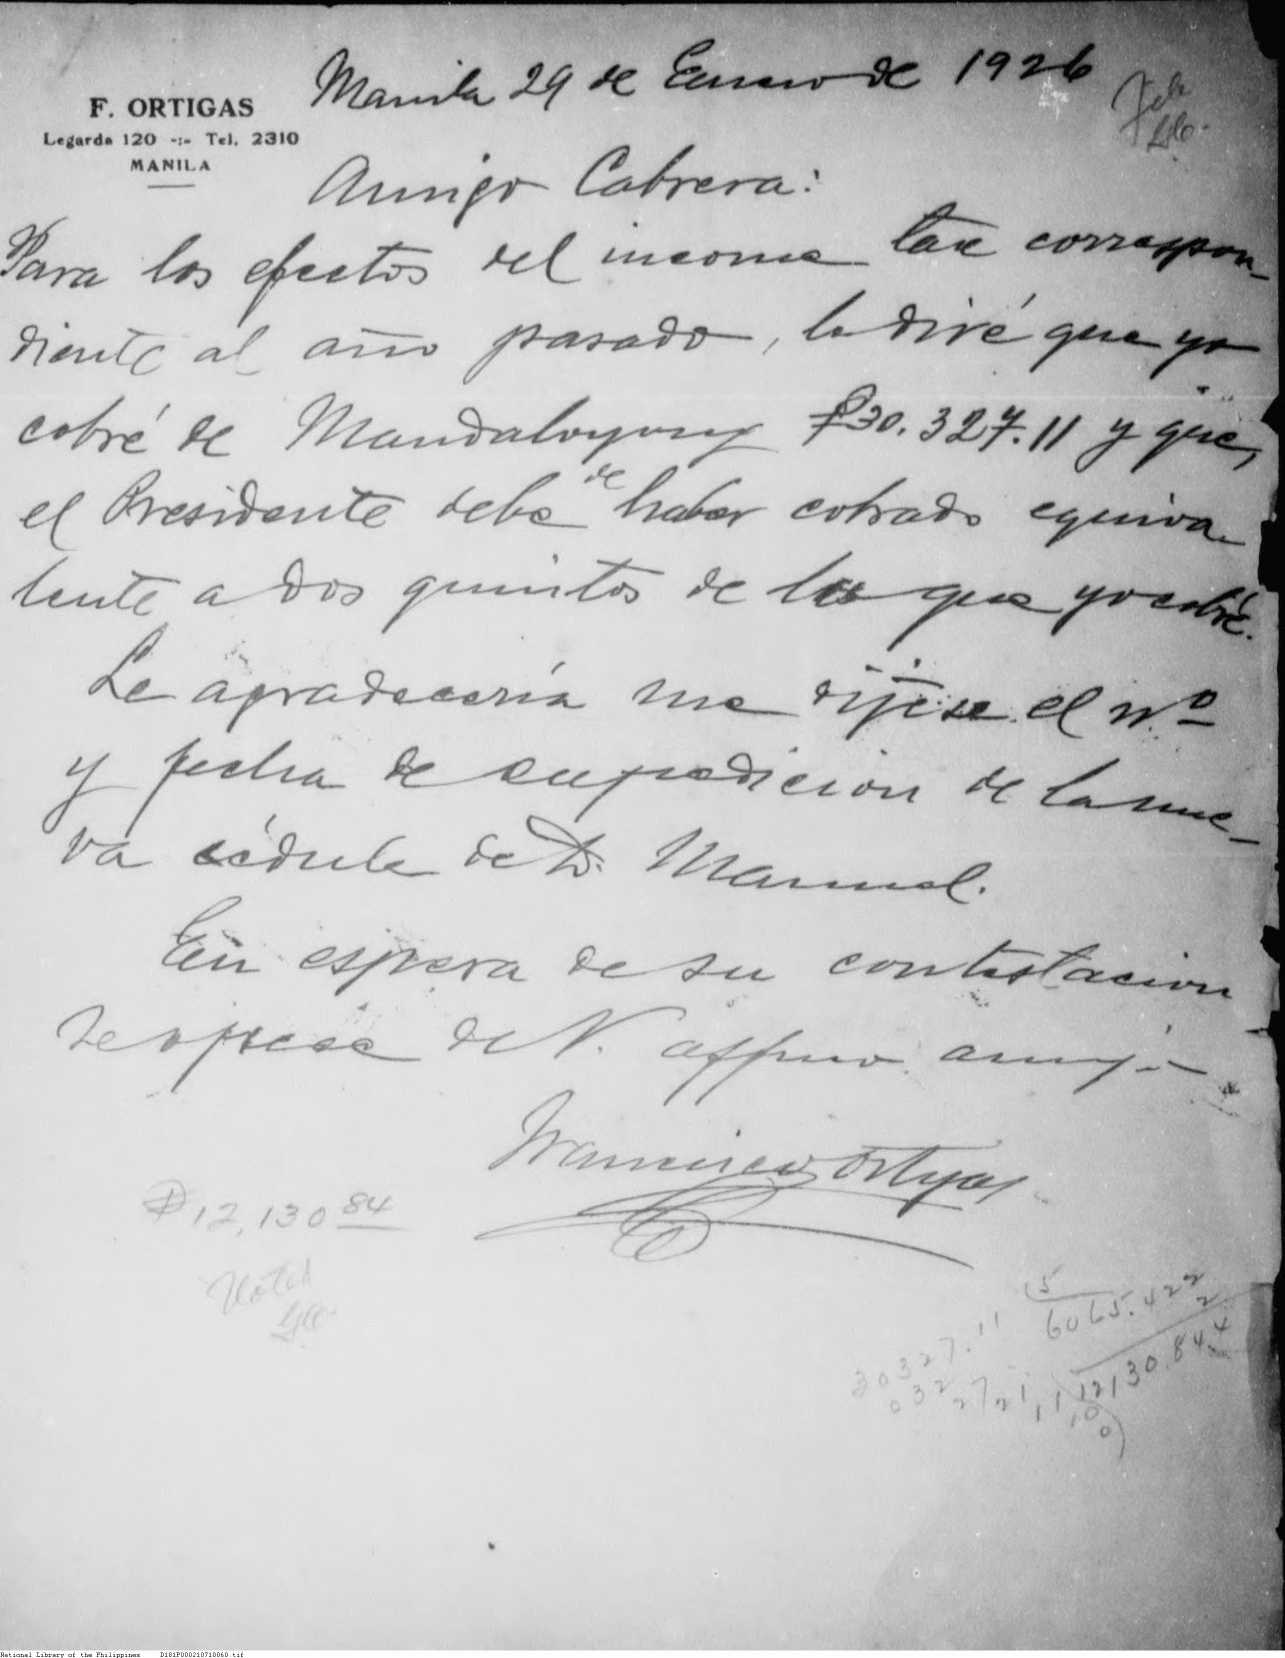 Manila 29 de Enero de 1926
F. ORTIGAS
Legarda 120 -:- Tel. 2310
MANILA
File
Amigo Cabrera:
Para los efectos del income tax correspon-
diente al año pasado, le diré que yo
cobré de Mandaloyong ₱30.327.11 y que,
el Presidente debe de haber cobrado equiva-
lente a dos quintos de lo que yo cobré.
Le agradecería me dijese el nº
y fecha de expedicion de la nue-
va cédula de D. Manuel.
En espera de su contestacion
se ofrece de V. affmo. amigo
Francisco Ortigas
₱12,130 84
Noted
30327.11 5
03 6065.422
27 2
21 12130.844
11
10
0
National Library of the Philippines D181P000210710060.tif